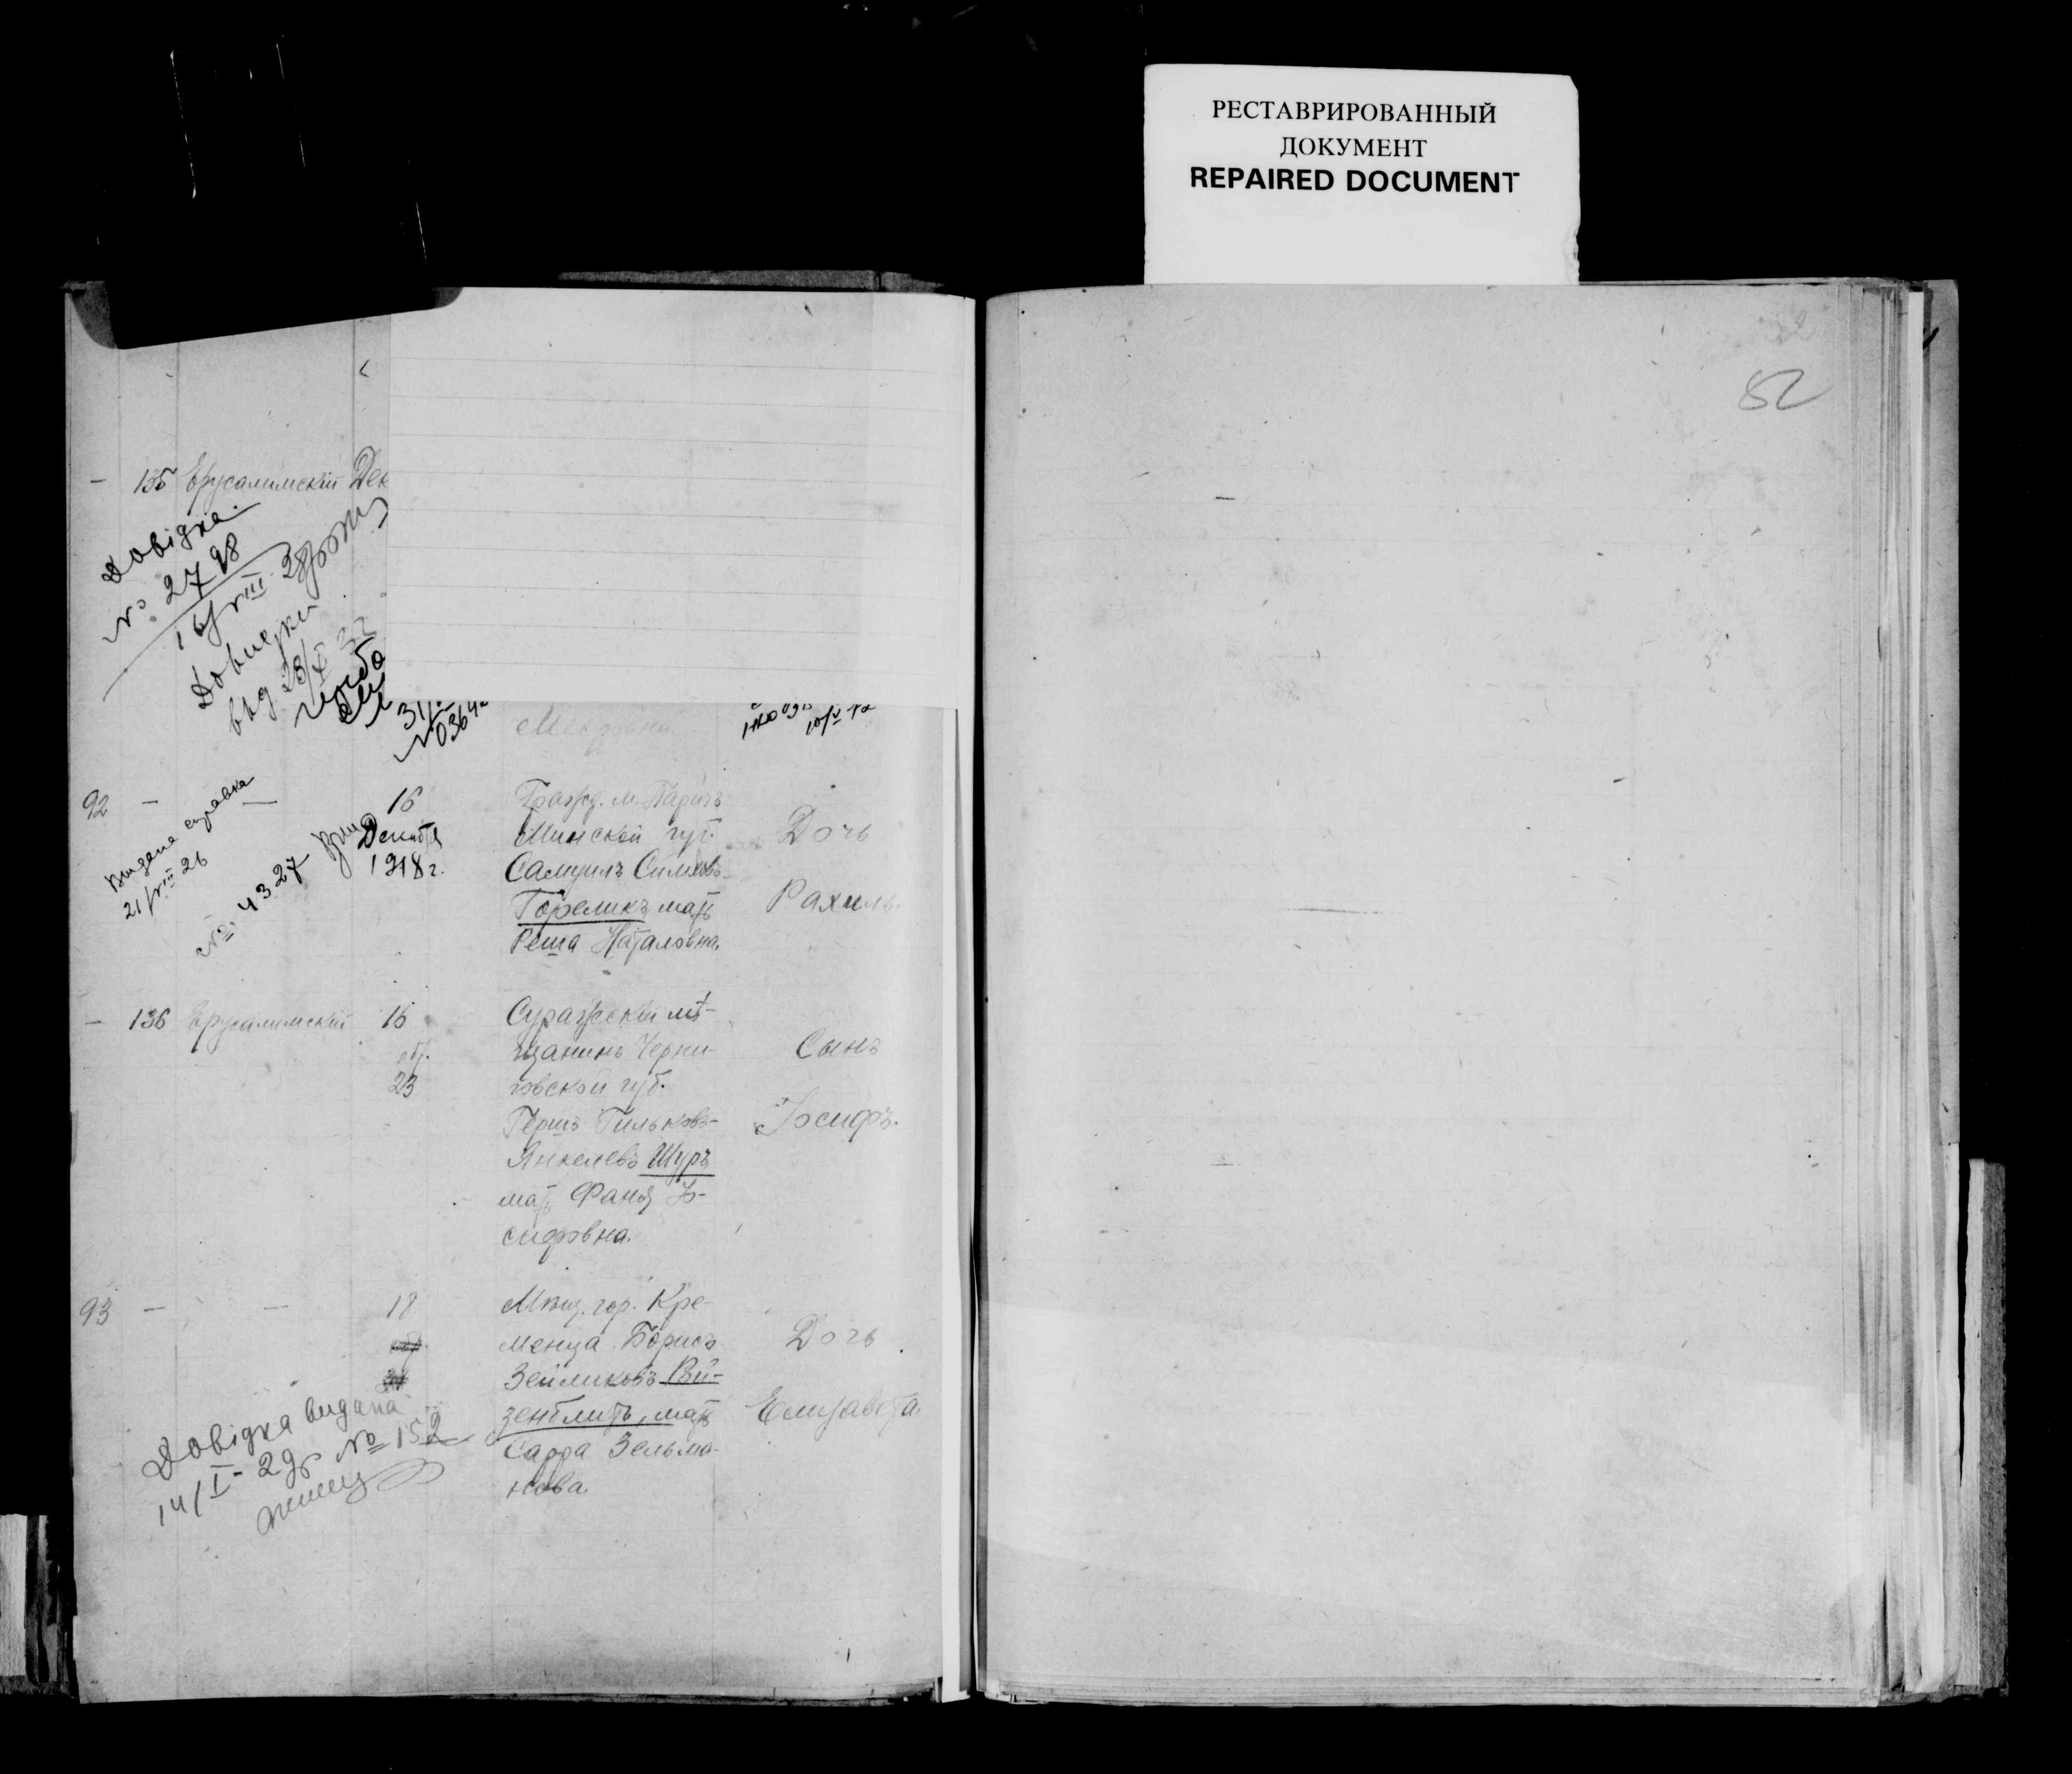 РЕСТАВРИРОВАННЫЙ
ДОКУМЕНТ
REPAIRED DOCUMENT
52
— 135 Ерусалимскій Дек
Довідка
№ 2798
16/VIII 28
Довидки
вид 28/X 32
31/
№ 0364
10/V
92 — —
Выдана справка
21/VIII 26
№ 4327
16
Декабря
1918 г.
Гражд. м. Паричъ
Минской губ.
Самуилъ Симховъ
Гореликъ, мать
Реша Наталовна.
Дочь
Рахиль.
— 136 Ерусалимскій
16
обр.
23
Суражскій мѣ-
щанинъ Черни-
говской губ.
Гершъ Гильковъ-
Янкелевъ Шуръ
мать Фаня Іо-
сифовна.
Сынъ
Іосифъ.
93 — —
18
Мѣщ. гор. Кре-
менца Борисъ
Зейликовъ Вай-
зенблитъ, мать
Сарра Зельма-
нова.
Дочь
Елизавета.
Довідка видана
14/I - 29р № 152